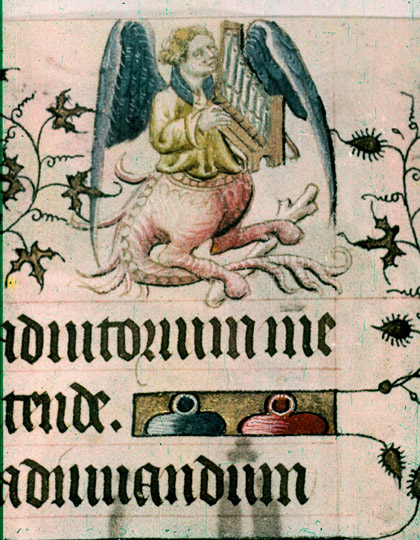 adiutorium me
tende.
adiuuandum